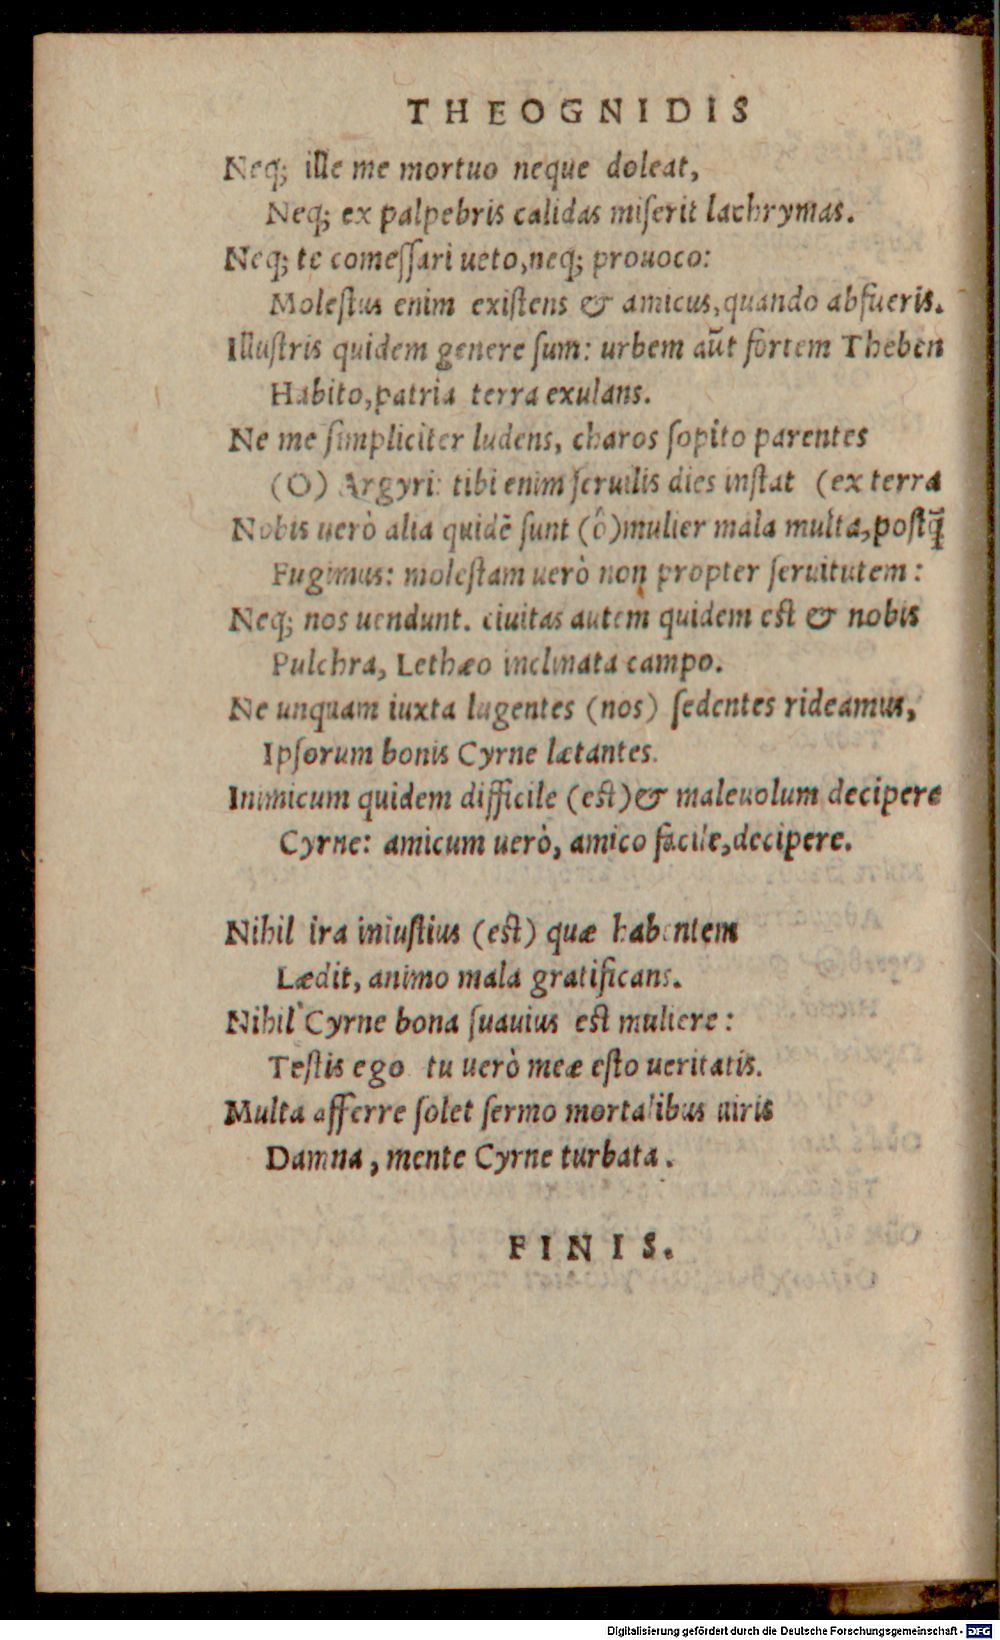 THEOGNIDIS
Neq; ille me mortuo neque doleat,
Neq; ex palpebris calidas miserit lachrymas.
Neq; te comessari ueto, neq; prouoco:
Molestus enim existens & amicus, quando abfueris.
Illustris quidem genere sum: urbem aūt fortem Theben
Habito, patria terra exulans.
Ne me simpliciter ludens, charos sopito parentes
(O) Argyri: tibi enim seruilis dies instat (ex terra
Nobis uerò alia quidē sunt (ô) mulier mala multa, postq̃
Fugimus: molestam uerò non propter seruitutem:
Neq; nos uendunt. ciuitas autem quidem est & nobis
Pulchra, Lethæo inclinata campo.
Ne unquam iuxta lugentes (nos) sedentes rideamus,
Ipsorum bonis Cyrne lætantes.
Inimicum quidem difficile (est) & maleuolum decipere
Cyrne: amicum uerò, amico facile, decipere.
Nihil ira iniustius (est) quæ habentem
Lædit, animo mala gratificans.
Nihil Cyrne bona suauius est muliere:
Testis ego tu uerò meæ esto ueritatis.
Multa afferre solet sermo mortalibus uiris
Damna, mente Cyrne turbata.
FINIS.
Digitalisierung gefördert durch die Deutsche Forschungsgemeinschaft - DFG